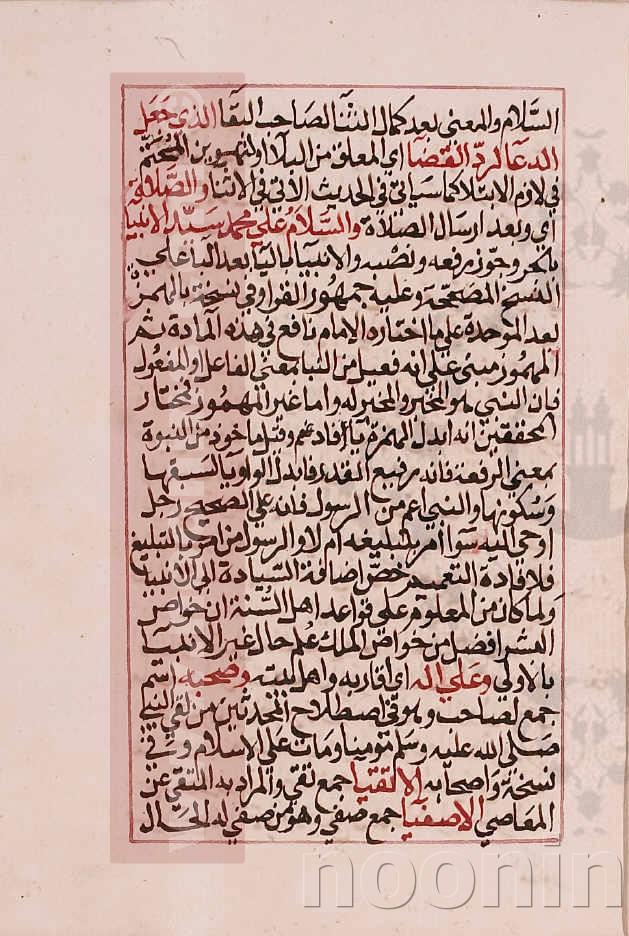 السَّلام والمعنى بعد كمال الثنا لصاحب البقا الذي جَعَل
الدعا لرد القضا اي المعلق من البلا او لتهوين المحتم
في لازم الابتلا كما سياتي في الحديث الآتي في الاثنا والصَّلاة
اي وبعد ارسال الصلاة والسَّلامُ علي محمد سيّد الانبيا
بالجر وجوّز رفعه ونصبه والانبيا بالياء بعد البا علي
النسخ المصححة وعليه جمهور القرا وفي نسخة بالهمز
بعد الموحدة علي ما اختاره الامام نافع في هذه المادة ثم
المهموز مبني علي انه فعيل من النبا بمعني الفاعل او المفعول
فان النبي هو المخبر والمخبر له واما غير المهموز فمختار
المحققين انه ابدل الهمزة يا وقيل ماخوذ من النبوة
بمعني الرفعة فانه رفيع القدر فابدل الواو يا لسبقها
وسكونها والنبي اعم من الرسول فانه علي الصحيح رجل
اوحي اليه سوا امر بتبليغه ام لا والرسول من امر بالتبليغ
فلافادة التعميم خصّ اضافة السيادة الي الانبيا
ولما كان من المعلوم علي قواعد اهل السُّنة ان خواص
البشر افضل من خواص الملك علم حال غير الانبيا
بالاولي وعلي اله اي اقاربه واهل بيته وصحبه اسم
جمع لصاحب وهو في اصطلاح المحدثين من لقي النبي
صلي الله عليه وسلم مومنا ومات علي الاسلام وفي
نسخة واصحابه الاتقيا جمع تقي والمراد به المتقي عن
المعاصي الاصفيا جمع صفي وهو من صفي له الحال
noonin